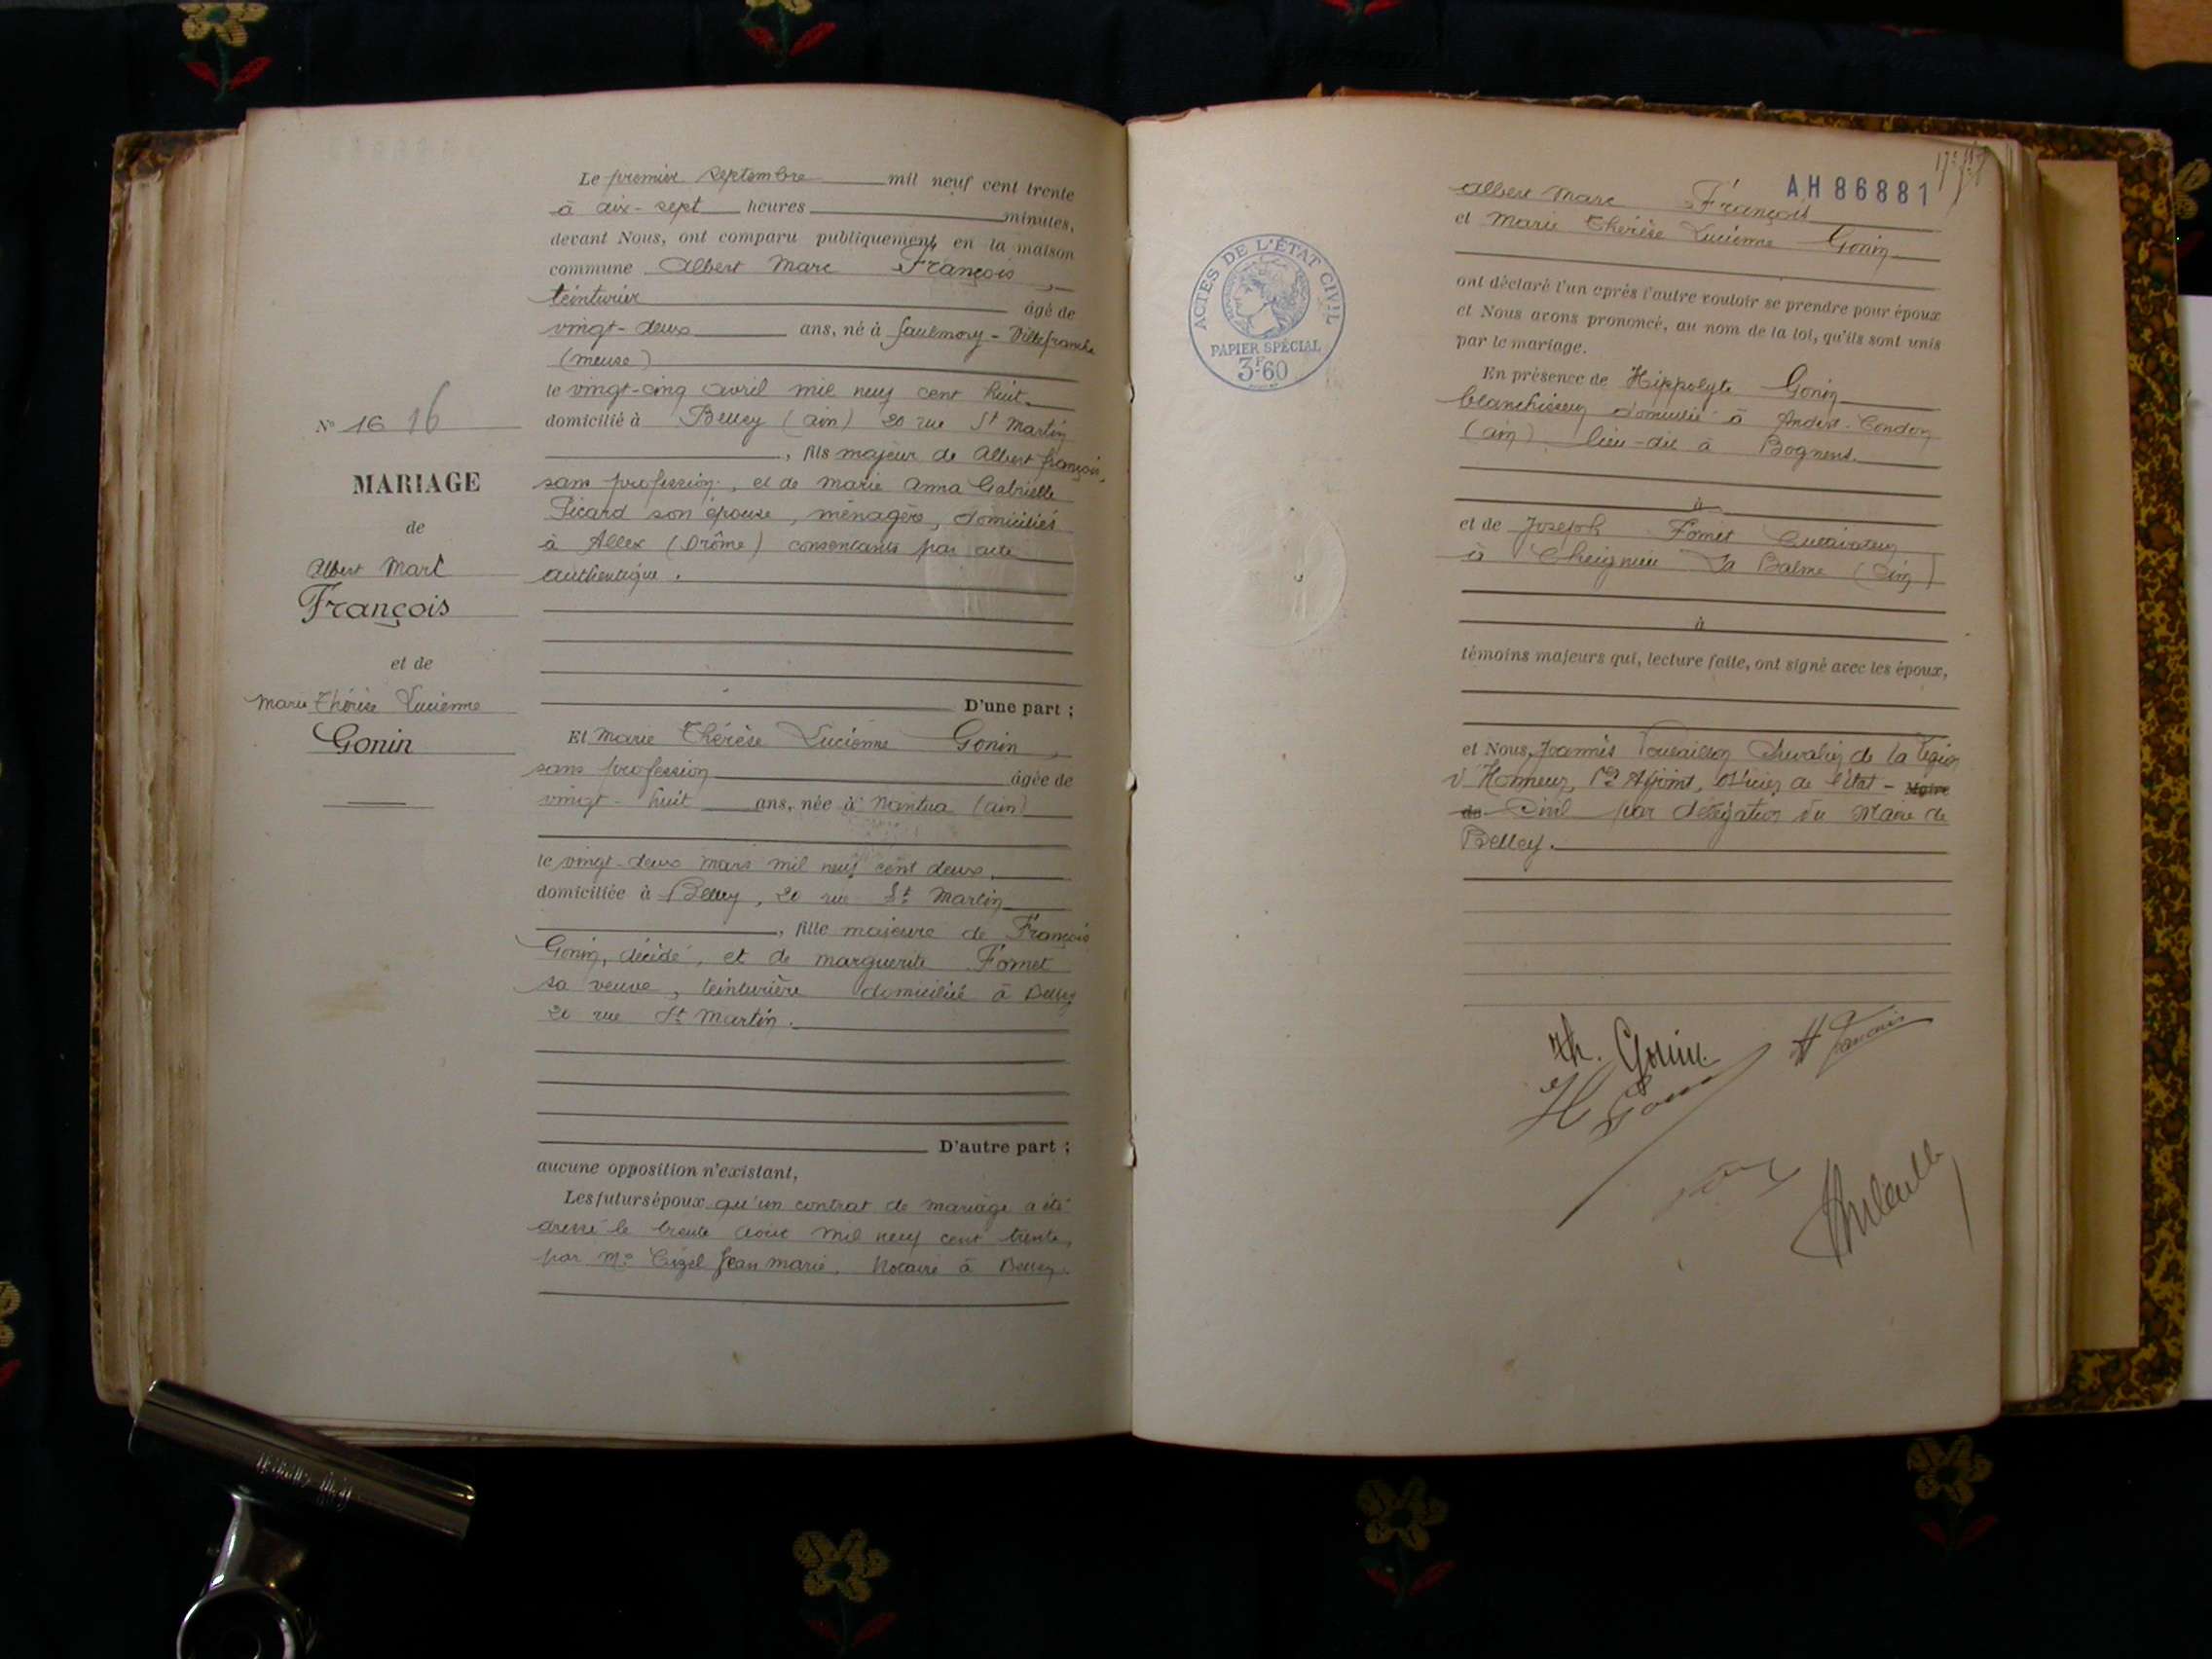 Le premier septembre mil neuf cent trente
à dix-sept heures minutes,
devant Nous, ont comparu publiquement, en la maison
commune Albert Marc François,
teinturier âgé de
vingt-deux ans, né à Saulmory-Villefranche
(Meuse)
le vingt-cinq avril mil neuf cent huit
domicilié à Belley (ain) 20 rue St Martin
, fils majeur de Albert François,
sans profession, et de Marie Anna Gabrielle
Picard son épouse, ménagère, domiciliés
à Allex (Drôme) consentants par acte
authentique.
N° 16 16
MARIAGE
de
Albert Marc
François
et de
Marie Thérèse Lucienne
Gonin
D'une part ;
Et Marie Thérèse Lucienne Gonin,
sans profession âgée de
vingt-huit ans, née à Nantua (ain)
le vingt-deux mars mil neuf cent deux,
domiciliée à Belley, 20 rue St Martin
, fille majeure de François
Gonin, décédé, et de marguerite Fornet
sa veuve, teinturière domiciliée à Belley
20 rue St Martin.
D'autre part ;
aucune opposition n'existant,
Les futurs époux qu'un contrat de mariage a été
dressé le trente août mil neuf cent trente,
par Me Jean Marie, Notaire à Belley.
AH 86881
Albert Marc François
et Marie Thérèse Lucienne Gonin
ACTES DE L'ÉTAT CIVIL
PAPIER SPÉCIAL
3F60
ont déclaré l'un après l'autre vouloir se prendre pour époux
et Nous avons prononcé, au nom de la loi, qu'ils sont unis
par le mariage.
En présence de Hippolyte Gonin
blanchisseur domicilié à Andert-Condon
(ain) lieu-dit à Bognens.
à
et de Joseph Fornet Cultivateur
à Cheignieu La Balme (ain)
à
témoins majeurs qui, lecture faite, ont signé avec les époux,
et Nous, Joannès Chevalier de la Légion
d'Honneur, 1er Adjoint, officier de l'état - Maire
de Civil par délégation du Maire de
Belley.
Th. Gonin
A François
H Gonin